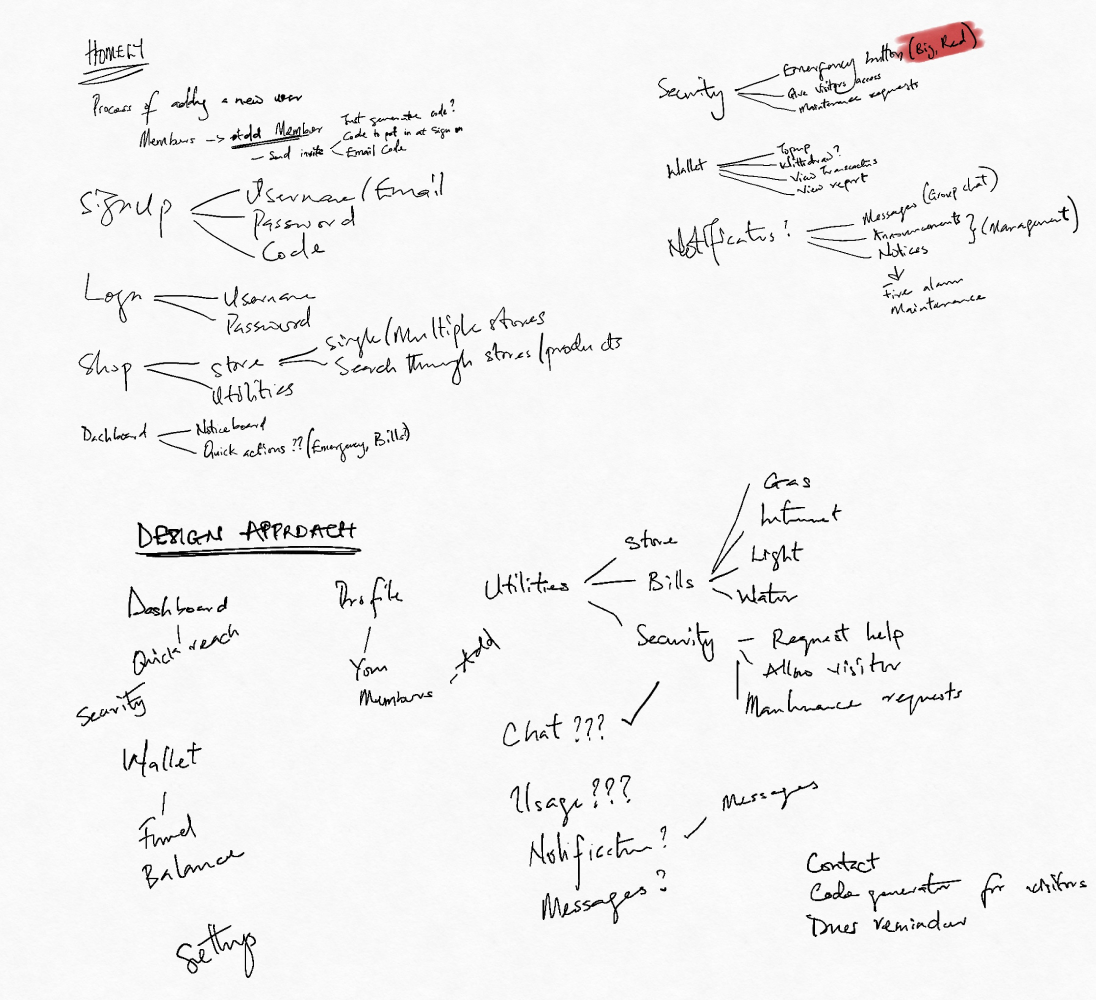 HOMELY
Process of adding a new user
Members → Add Member
— Send invite
Just generate code?
Code to put in at sign on
Email Code
Sign Up
Username/Email
Password
Code
Login
Username
Password
Shop
Store
Single/Multiple stores
Search through stores/products
Utilities
Dashboard
Noticeboard
Quick actions ?? (Emergency, Bills)
Security
Emergency button (Big, Red)
Give visitors access
Maintenance requests
Wallet
Topup
Withdraw?
View Transactions
View report
Notifications?
Messages (Group chat)
Announcements
Notices
} (Management)
↓
Fire alarm
Maintenance
DESIGN APPROACH
Dashboard
Quick reach
Security
Wallet
Fund
Balance
Profile
You
Members — Add
Utilities
Store
Bills
Gas
Internet
Light
Water
Security
Request help
Allow visitor
Maintenance requests
Chat ??? ✓
Usage ???
Notification? ✓ Messages
Messages?
Contact
Code generator for visitors
Dues reminder